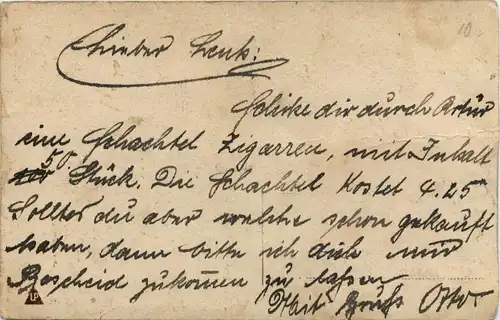 10
Lieber Lenk:
Schicke dir durch Artur
eine Schachtel Zigarren, mit Inhalt
50 Stück. Die Schachtel kostet 4.25
Solltes du aber welche schon gekauft
haben, dann bitte ich dich mir
Bescheid zukommen zu lassen
Mit Gruß Otto
LP